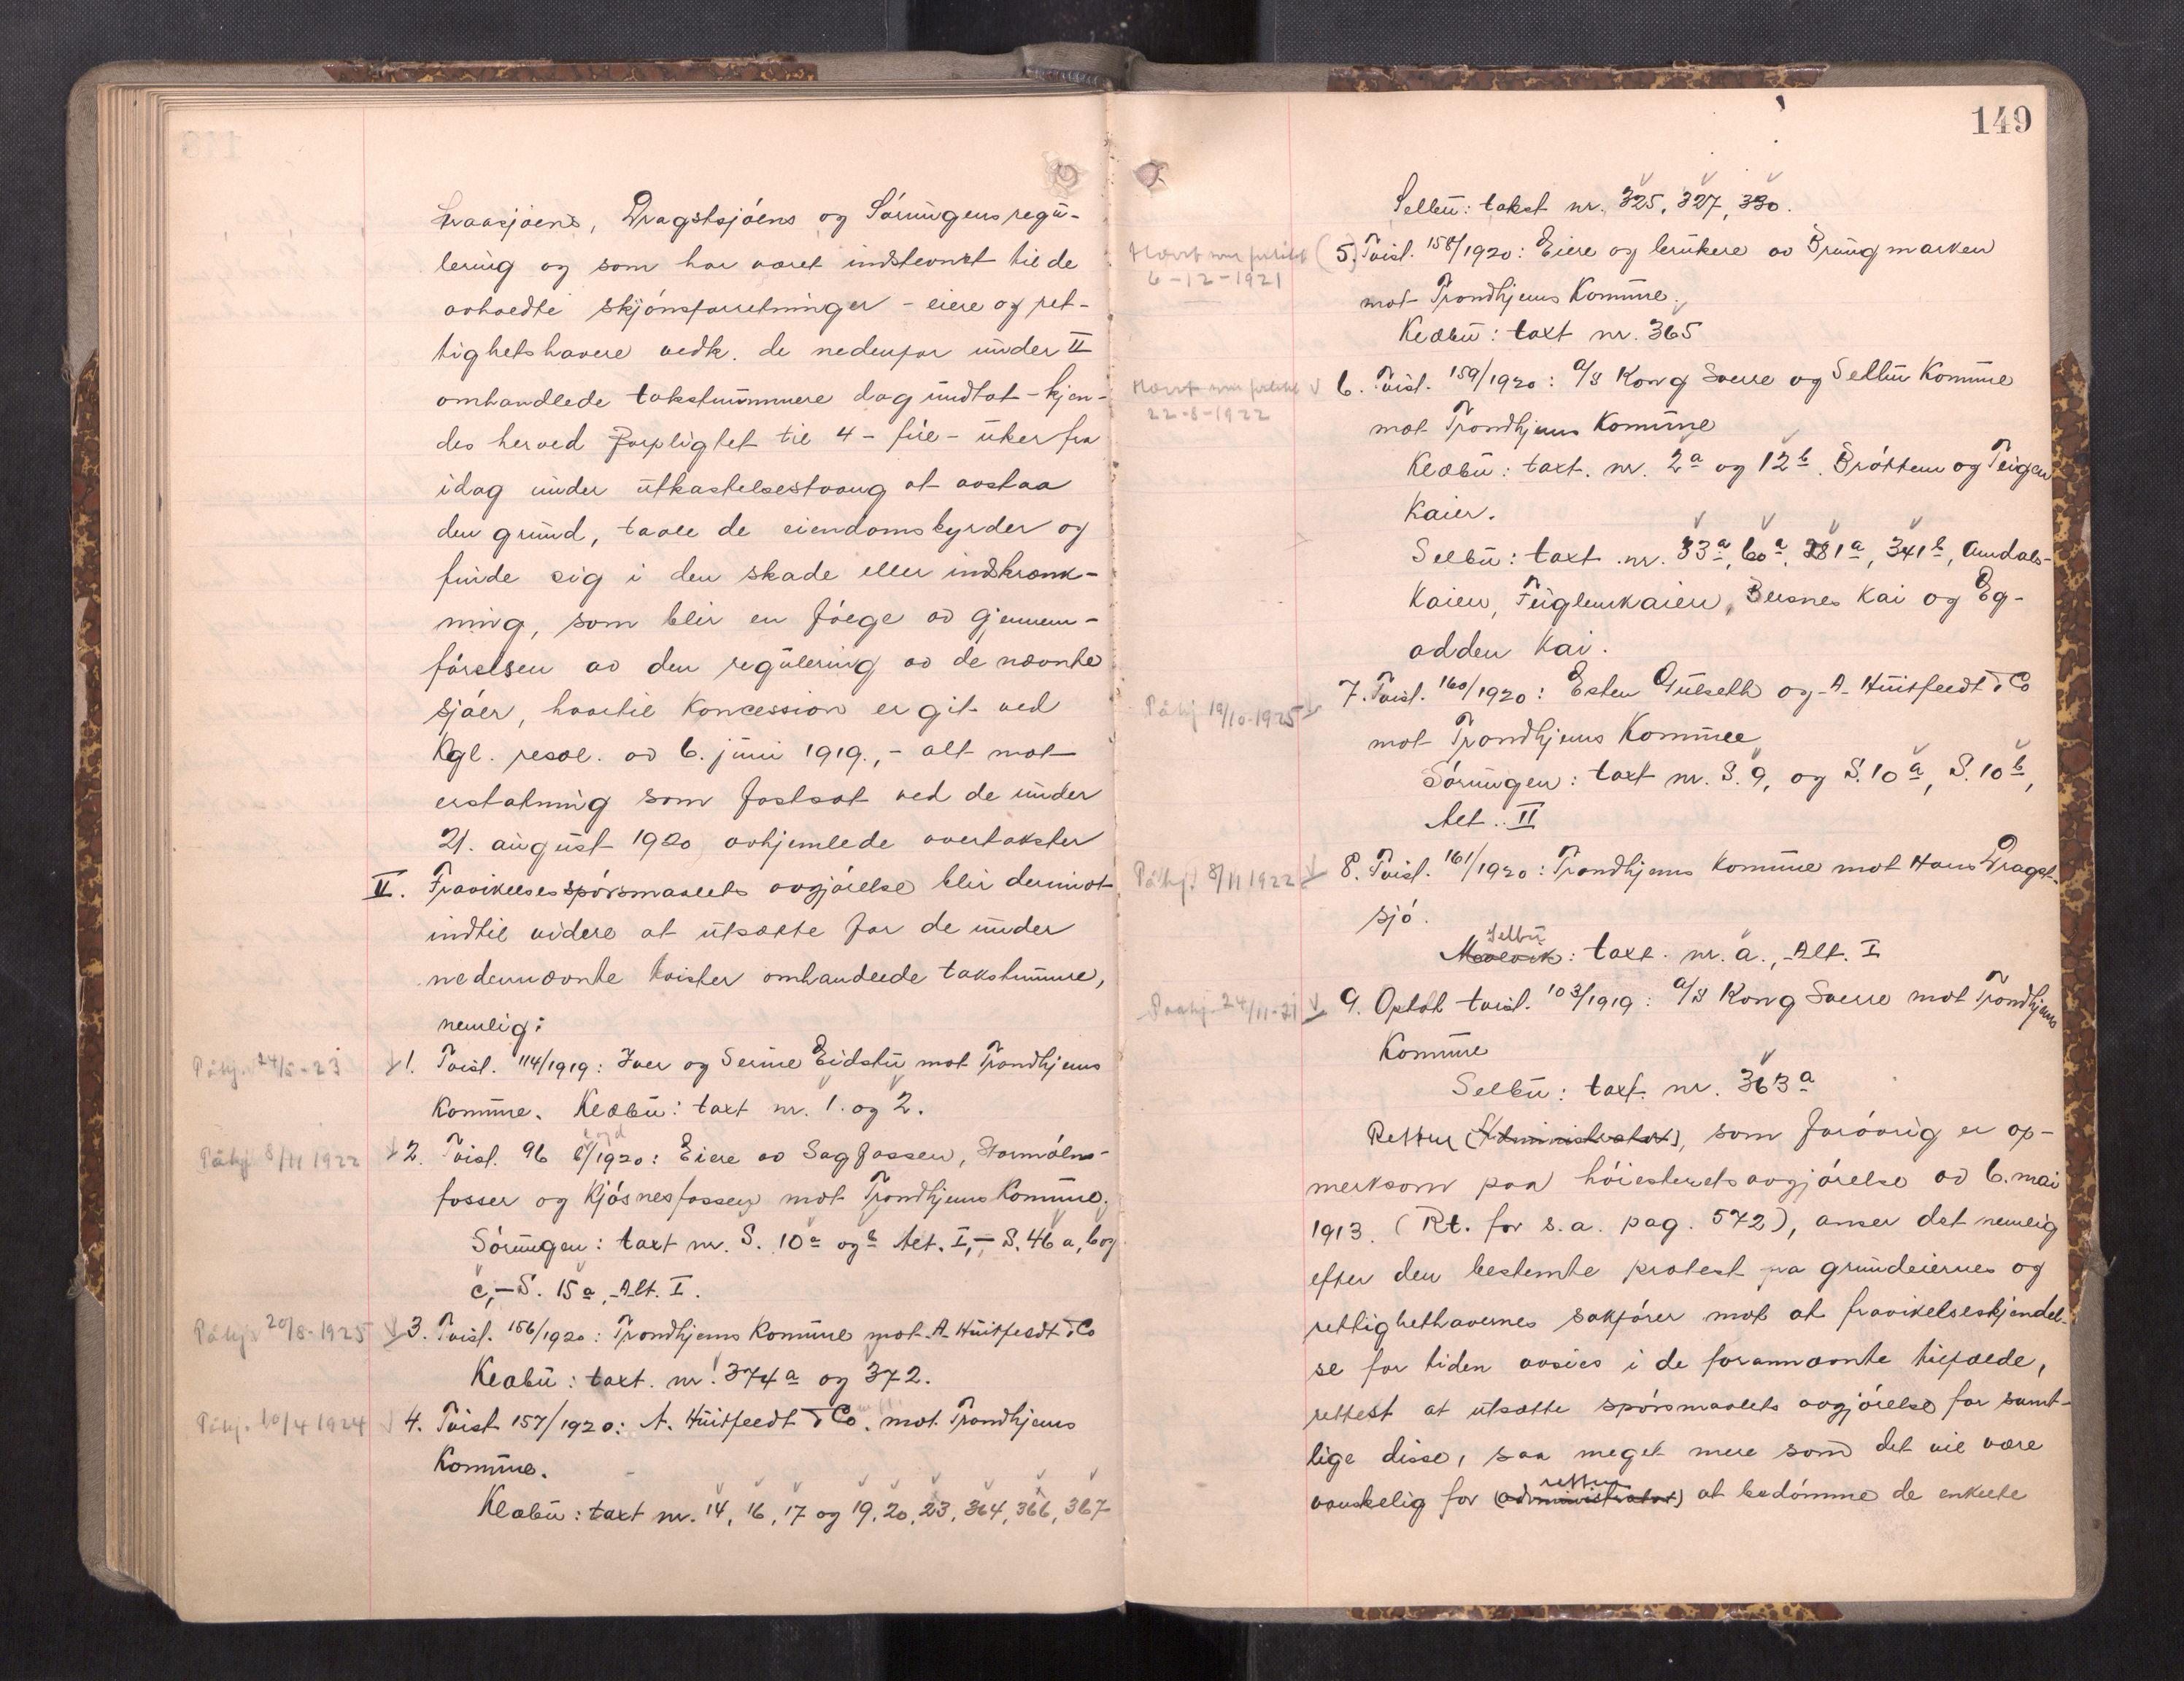 sjøens, Dragstsjöens og Sörungens regu-
lering og som har været indstevnet til de
avholdte skjönsforretninger - eiere og ret-
tighetshavere vedk. de nedenfor under II
omhandlede takstnummere dog undtat - kjen-
des herved forpligtet til 4 - fire - uker fra
idag under utkastelsestvang at avstaa
den grund, taale de eiendomsbyrder og
finde sig i den skade eller indskrænk-
ning, som blir en fölge av gjennem-
förelsen av den regulering av de nævnte
sjöer, hvortil koncession er git ved
Kgl. resol. av 6. juni 1919, - alt mot
erstatning som fastsat ved de under
21. august 1920 avhjemlede overtakster
II. Fravikelsesspörsmaalets avgjörelse blir derimot
indtil videre at utsætte for de under
nedennævnte tvister omhandlede takstnumre,
nemlig:
Påhj. 24/5-23 1. Tvist. 114/1919: Iver og Serine Eidstu mot Trondhjems
Komme. Klæbu: taxt nr. 1. og 2.
Påhj 8/11 1922 2. Tvisl. 96 /1920: Eiere av Sagfossen,
fosser og Kjösnesfossen mot Trondhjems Komme.
Sörungen: taxt nr. S. 10a og b Alt. I, - S. 46 a, b og
c, - S. 15a, Alt. I.
Påhj. 20/8-1925 3. Tvisl. 156/1920: Trondhjems Komme mot A. Huitfeldt & Co
Klæbu: taxt. nr. 374a og 372.
Påhj. 10/4 1924 4. Tvist 157/1920: A. Huitfeldt & Co. mot Trondhjems
Komme.
Klæbu: taxt nr. 14, 16, 17 og 19, 20, 23, 364, 366, 367
149
Selbu: takst nr. 325, 327, 330.
Hævet
6-12-1921
5. Tvisl. 158/1920: Eiere og brukere av Brungmarken
mot Trondhjems Komme.
Klæbu: taxt nr. 365
Hævet
22-8-1922
6. Tvisl. 159/1920: A/S Kong Sverre og Selbu Komme
mot Trondhjems Komme
Klæbu: taxt. nr. 2a og 12b. Bröttem og Teigen
Kaier.
Selbu: taxt. nr. 33a, 60a, 281a, 341b, Amdals-
Kaien, Fuglemkaien, Busnes Kai og Eg-
odden Kai.
Påhj 19/10-1925 7. Tvisl. 160/1920: Esten Gulseth og A. Huitfeldt & Co
mot Trondhjems Komme
Sörungen: taxt nr. S. 9, og S. 10a, S. 10b,
Alt. II
Påhj. 8/11 1922 8. Tvisl. 161/1920: Trondhjems Komme mot Hans Dragst-
sjö.
Selbu
: taxt. nr. a., Alt. I
Paahj. 24/11-21 9. Optat tvisl. 103/1919: A/S Kong Sverre mot Trondhjems
Komme
Selbu: taxt. nr. 363a
Retten (Administrator), som forövrig er op-
merksom paa höiesteretsavgjörelse av 6. mai
1913. (Rt. for s.a. pag. 572), anser det nemlig
efter den bestemte protest fra grundeiernes og
rettighethavernes sakförer mot at fravikelseskjendel-
se for tiden avsies i de forannævnte tilfælde,
rettest at utsætte spörsmaalets avgjörelse for samt-
lige disse, saa meget mere som det vil være
retten
vanskelig for (administrator) at bedömme de enkelte